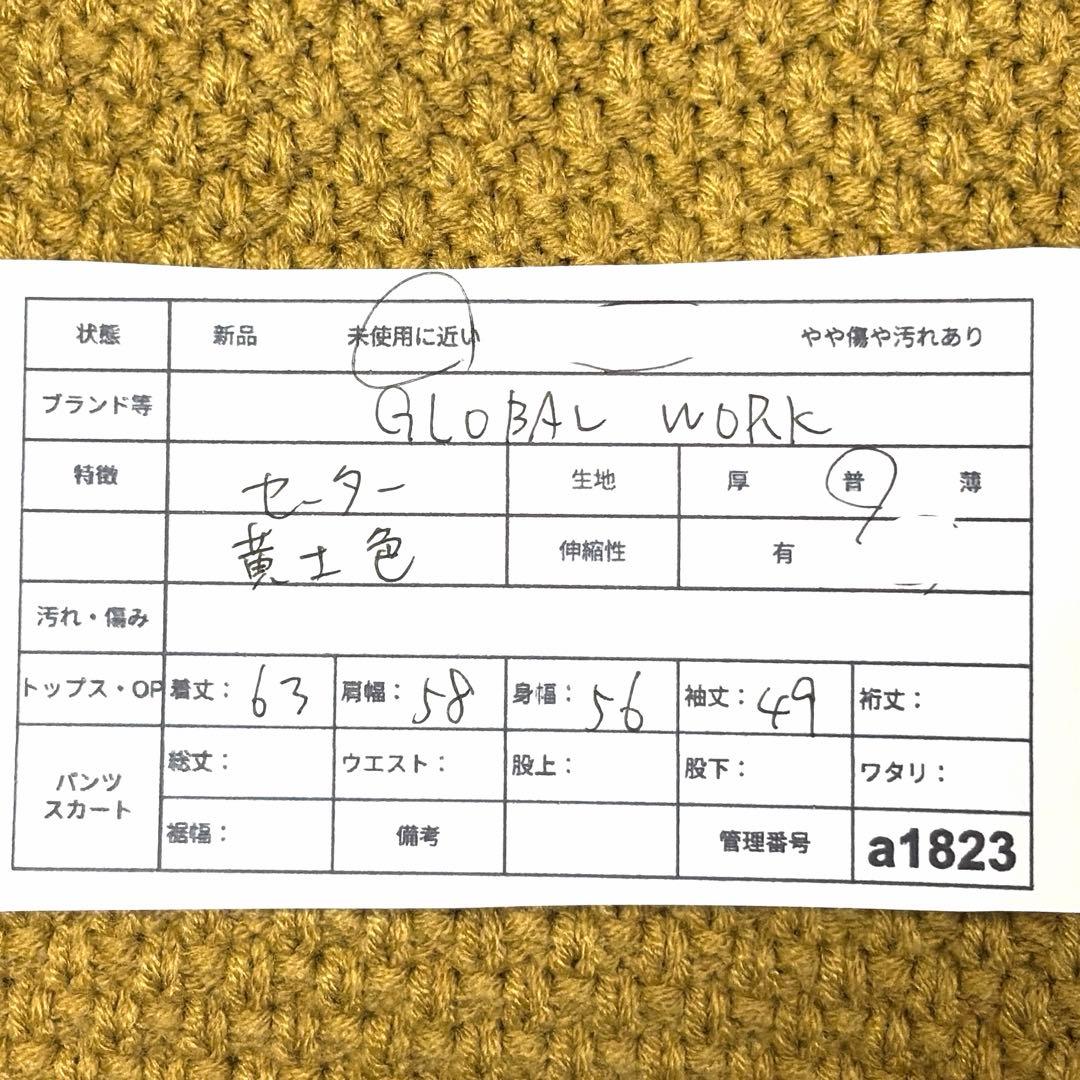 状態 新品 未使用に近い やや傷や汚れあり
ブランド等 GLOBAL WORK
特徴 セーター 生地 厚 普 薄
黄土色 伸縮性 有
汚れ・傷み
トップス・OP 着丈： 63 肩幅： 58 身幅： 56 袖丈： 49 裄丈：
パンツ スカート 総丈： ウエスト： 股上： 股下： ワタリ：
裾幅： 備考 管理番号 a1823